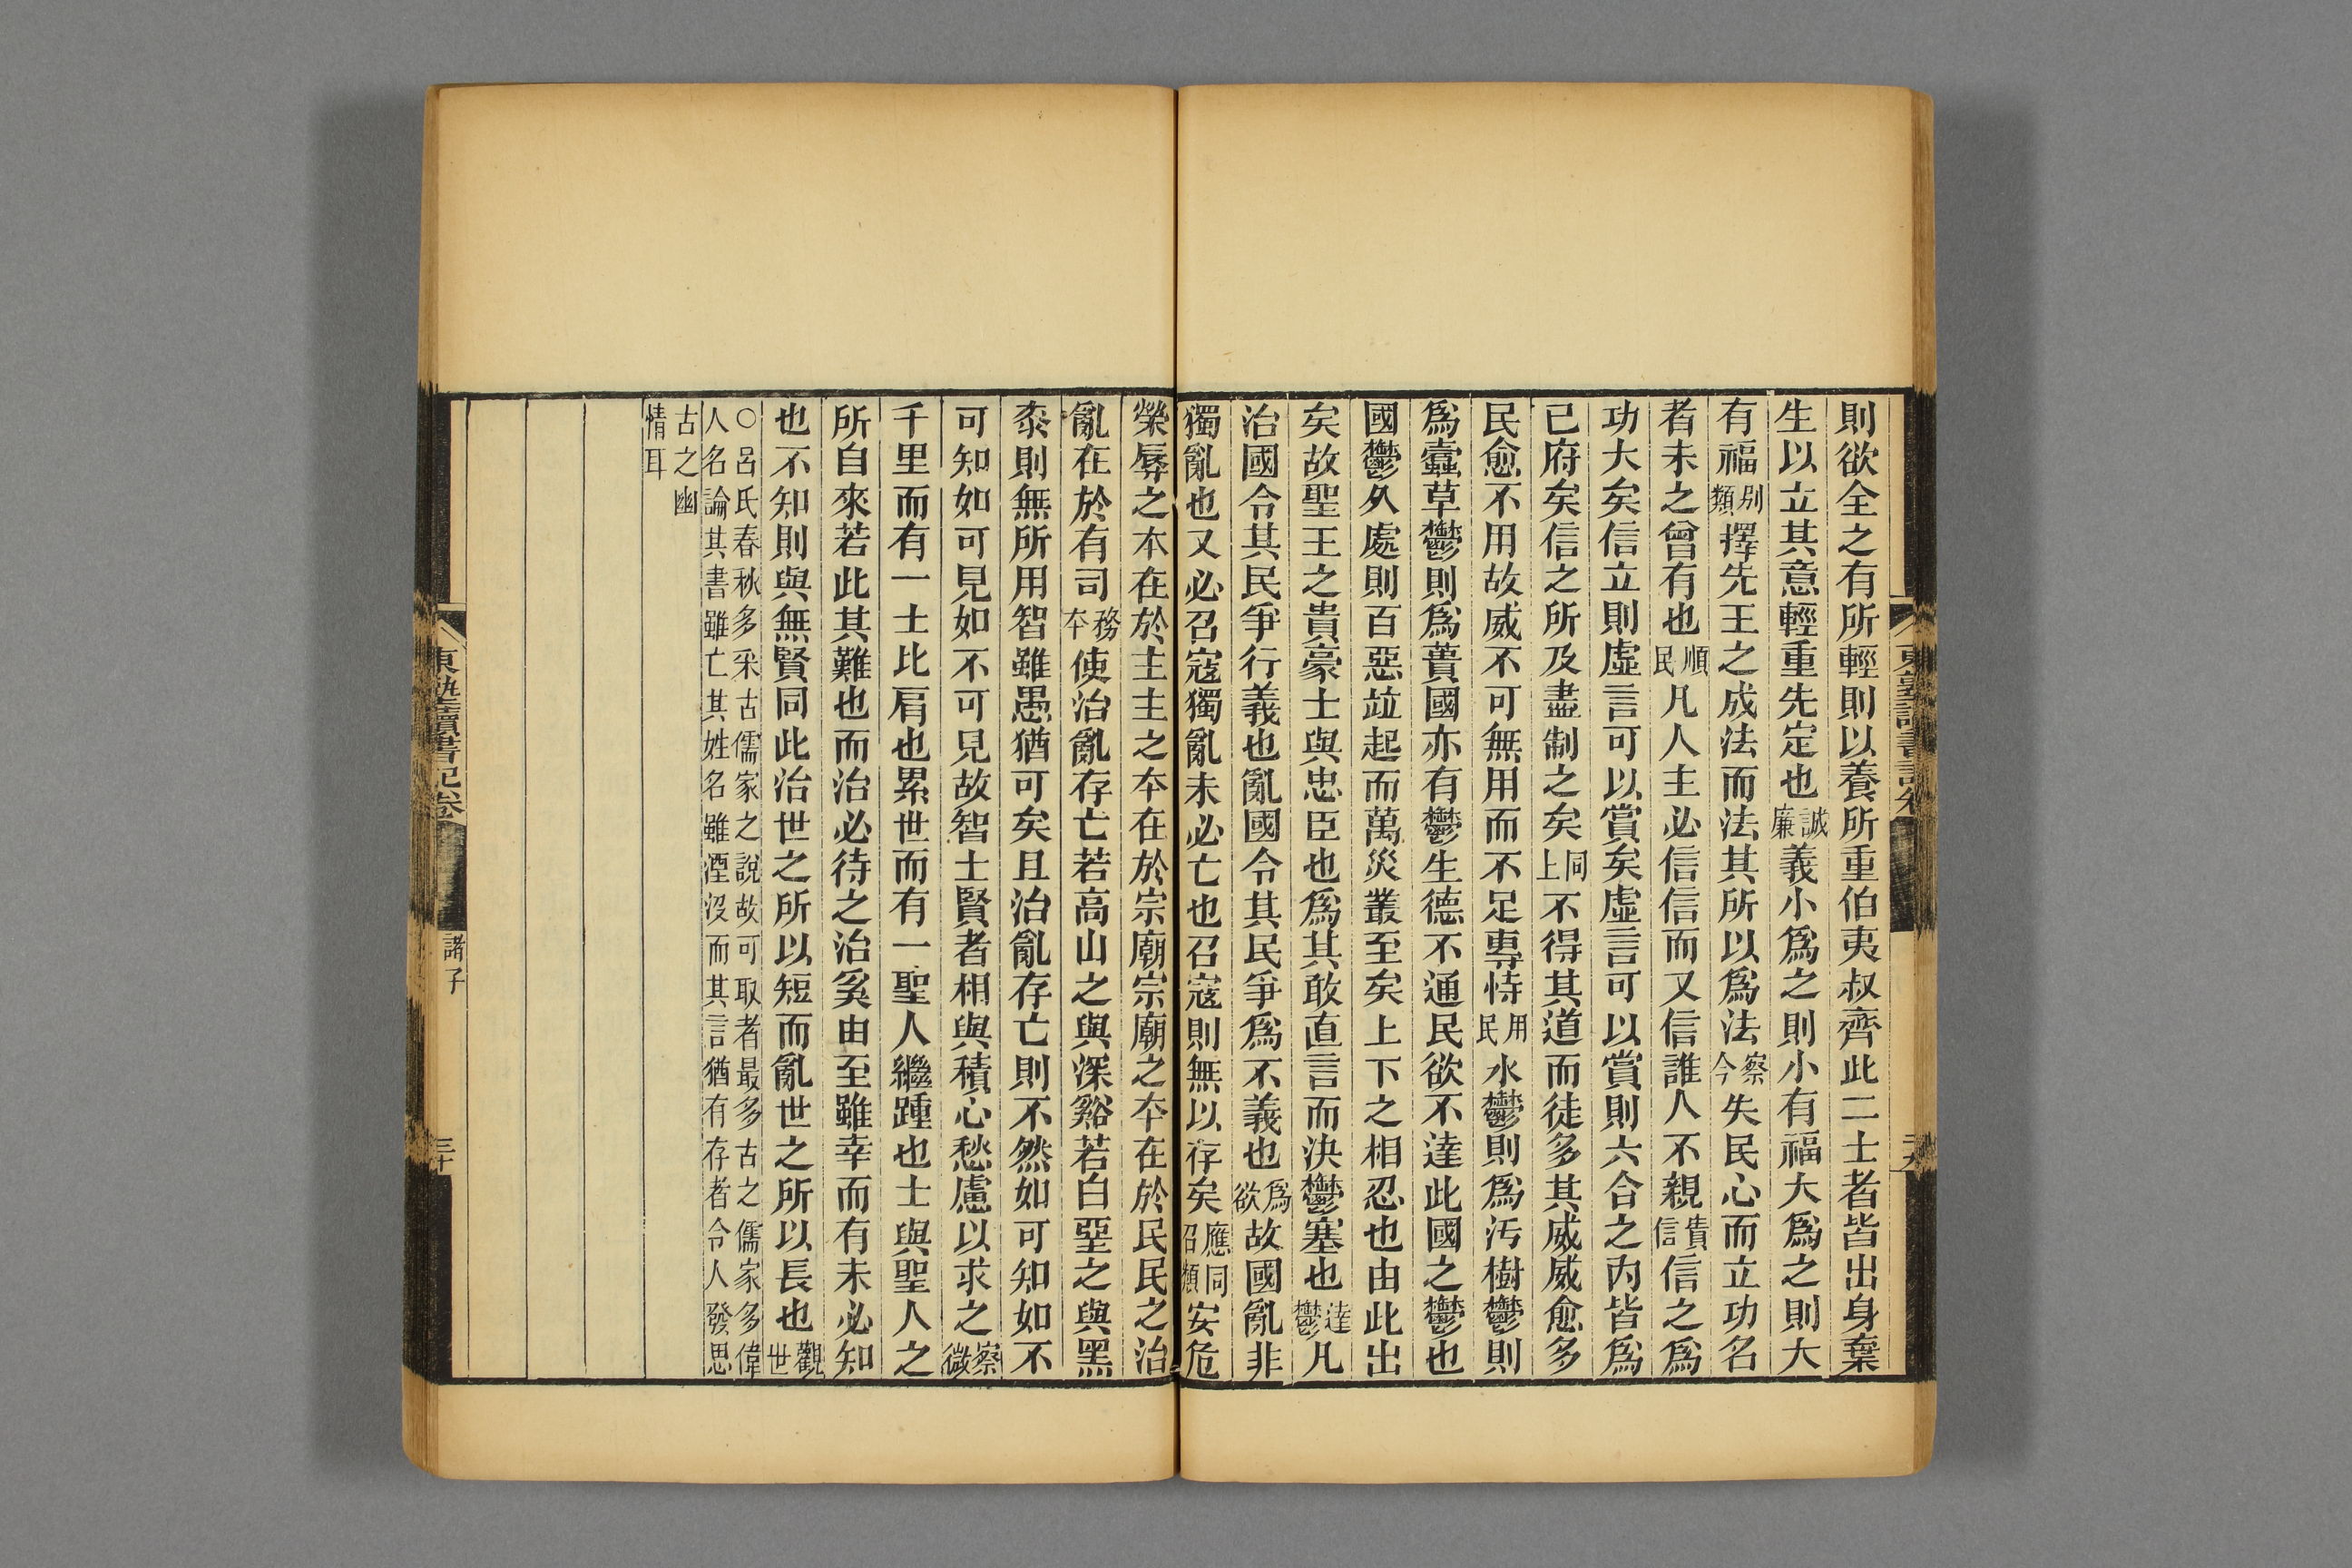 則欲全之有所輕則以養所重伯夷叔齊此二士者皆出身棄
生以立其意輕重先定也誠廉義小爲之則小有福大爲之則大
有福別類擇先王之成法而法其所以爲法察今失民心而立功名
者未之曾有也順民凡人主必信信而又信誰人不親貴信信之爲
功大矣信立則虛言可以賞矣虛言可以賞則六合之內皆爲
已府矣信之所及盡制之矣同上不得其道而徒多其威威愈多
民愈不用故威不可無用而不足專恃用民水鬱則爲汚樹鬱則
爲蠹草鬱則爲蕢國亦有鬱生德不通民欲不達此國之鬱也
國鬱久處則百惡竝起而萬災叢至矣上下之相忍也由此出
矣故聖王之貴豪士與忠臣也爲其敢直言而決鬱塞也達鬱凡
治國令其民爭行義也亂國令其民爭爲不義也爲欲故國亂非
獨亂也又必召寇獨亂未必亡也召寇則無以存矣應同召類安危
榮辱之本在於主主之本在於宗廟宗廟之本在於民民之治
亂在於有司務本使治亂存亡若高山之與深谿若白堊之與黑
桼則無所用智雖愚猶可矣且治亂存亡則不然如可知如不
可知如可見如不可見故智士賢者相與積心愁慮以求之察微
千里而有一士比肩也累世而有一聖人繼踵也士與聖人之
所自來若此其難也而治必待之治奚由至雖幸而有未必知
也不知則與無賢同此治世之所以短而亂世之所以長也觀世
○呂氏春秋多采古儒家之說故可取者最多古之儒家多偉
人名論其書雖亡其姓名雖湮沒而其言猶有存者令人發思
古之幽
情耳
東塾讀書記卷
諸子
三十